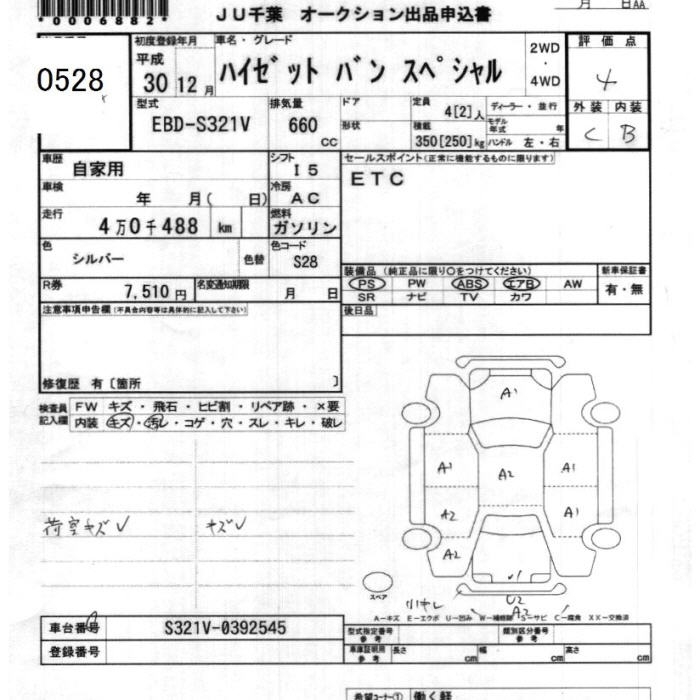 *0006882*
JU千葉 オークション出品申込書
月 日AA
0528
初度登録年月 車名・グレード 評価点
平成
30 12月 ハイゼット バン スペシャル 2WD ・ 4WD 4
型式 排気量 ドア 定員 4[2]人 ディーラー・並行 外装 内装
EBD-S321V 660 CC 形状 積載 350[250]kg モデル年式 年 ハンドル 左・右 C B
車歴 自家用 シフト I5 セールスポイント(正常に機能するものに限ります)
車検 年 月( 日) 冷房 AC ETC
走行 4万0千488 km 燃料 ガソリン
色 シルバー 色替 色コード S28
装備品(純正品に限り〇をつけてください) 新車保証書
R券 7,510円 名変通知期限 月 日 PS PW ABS エアB AW 有・無
SR ナビ TV カワ
注意事項申告欄(不具合内容等は具体的に記入して下さい) 後日品
修復歴 有〔箇所 〕
検査員記入欄 FW キズ・飛石・ヒビ割・リペア跡・×要
内装 キズ・汚れ・コゲ・穴・スレ・キレ・破レ
A1
A1 A2 A1
A2 A1
A2
荷室キズ✓ キズ✓
✓1
スペア 小キレ U2
A2
A-キズ E-エクボ U-凹み W-補修跡 S-サビ C-腐食 XX-交換済
車台番号 S321V-0392545 型式指定番号 参考 類別区分番号 参考
登録番号 車庫証明用 参考 長さ cm 幅 cm 高さ cm
希望コーナー① 働く軽